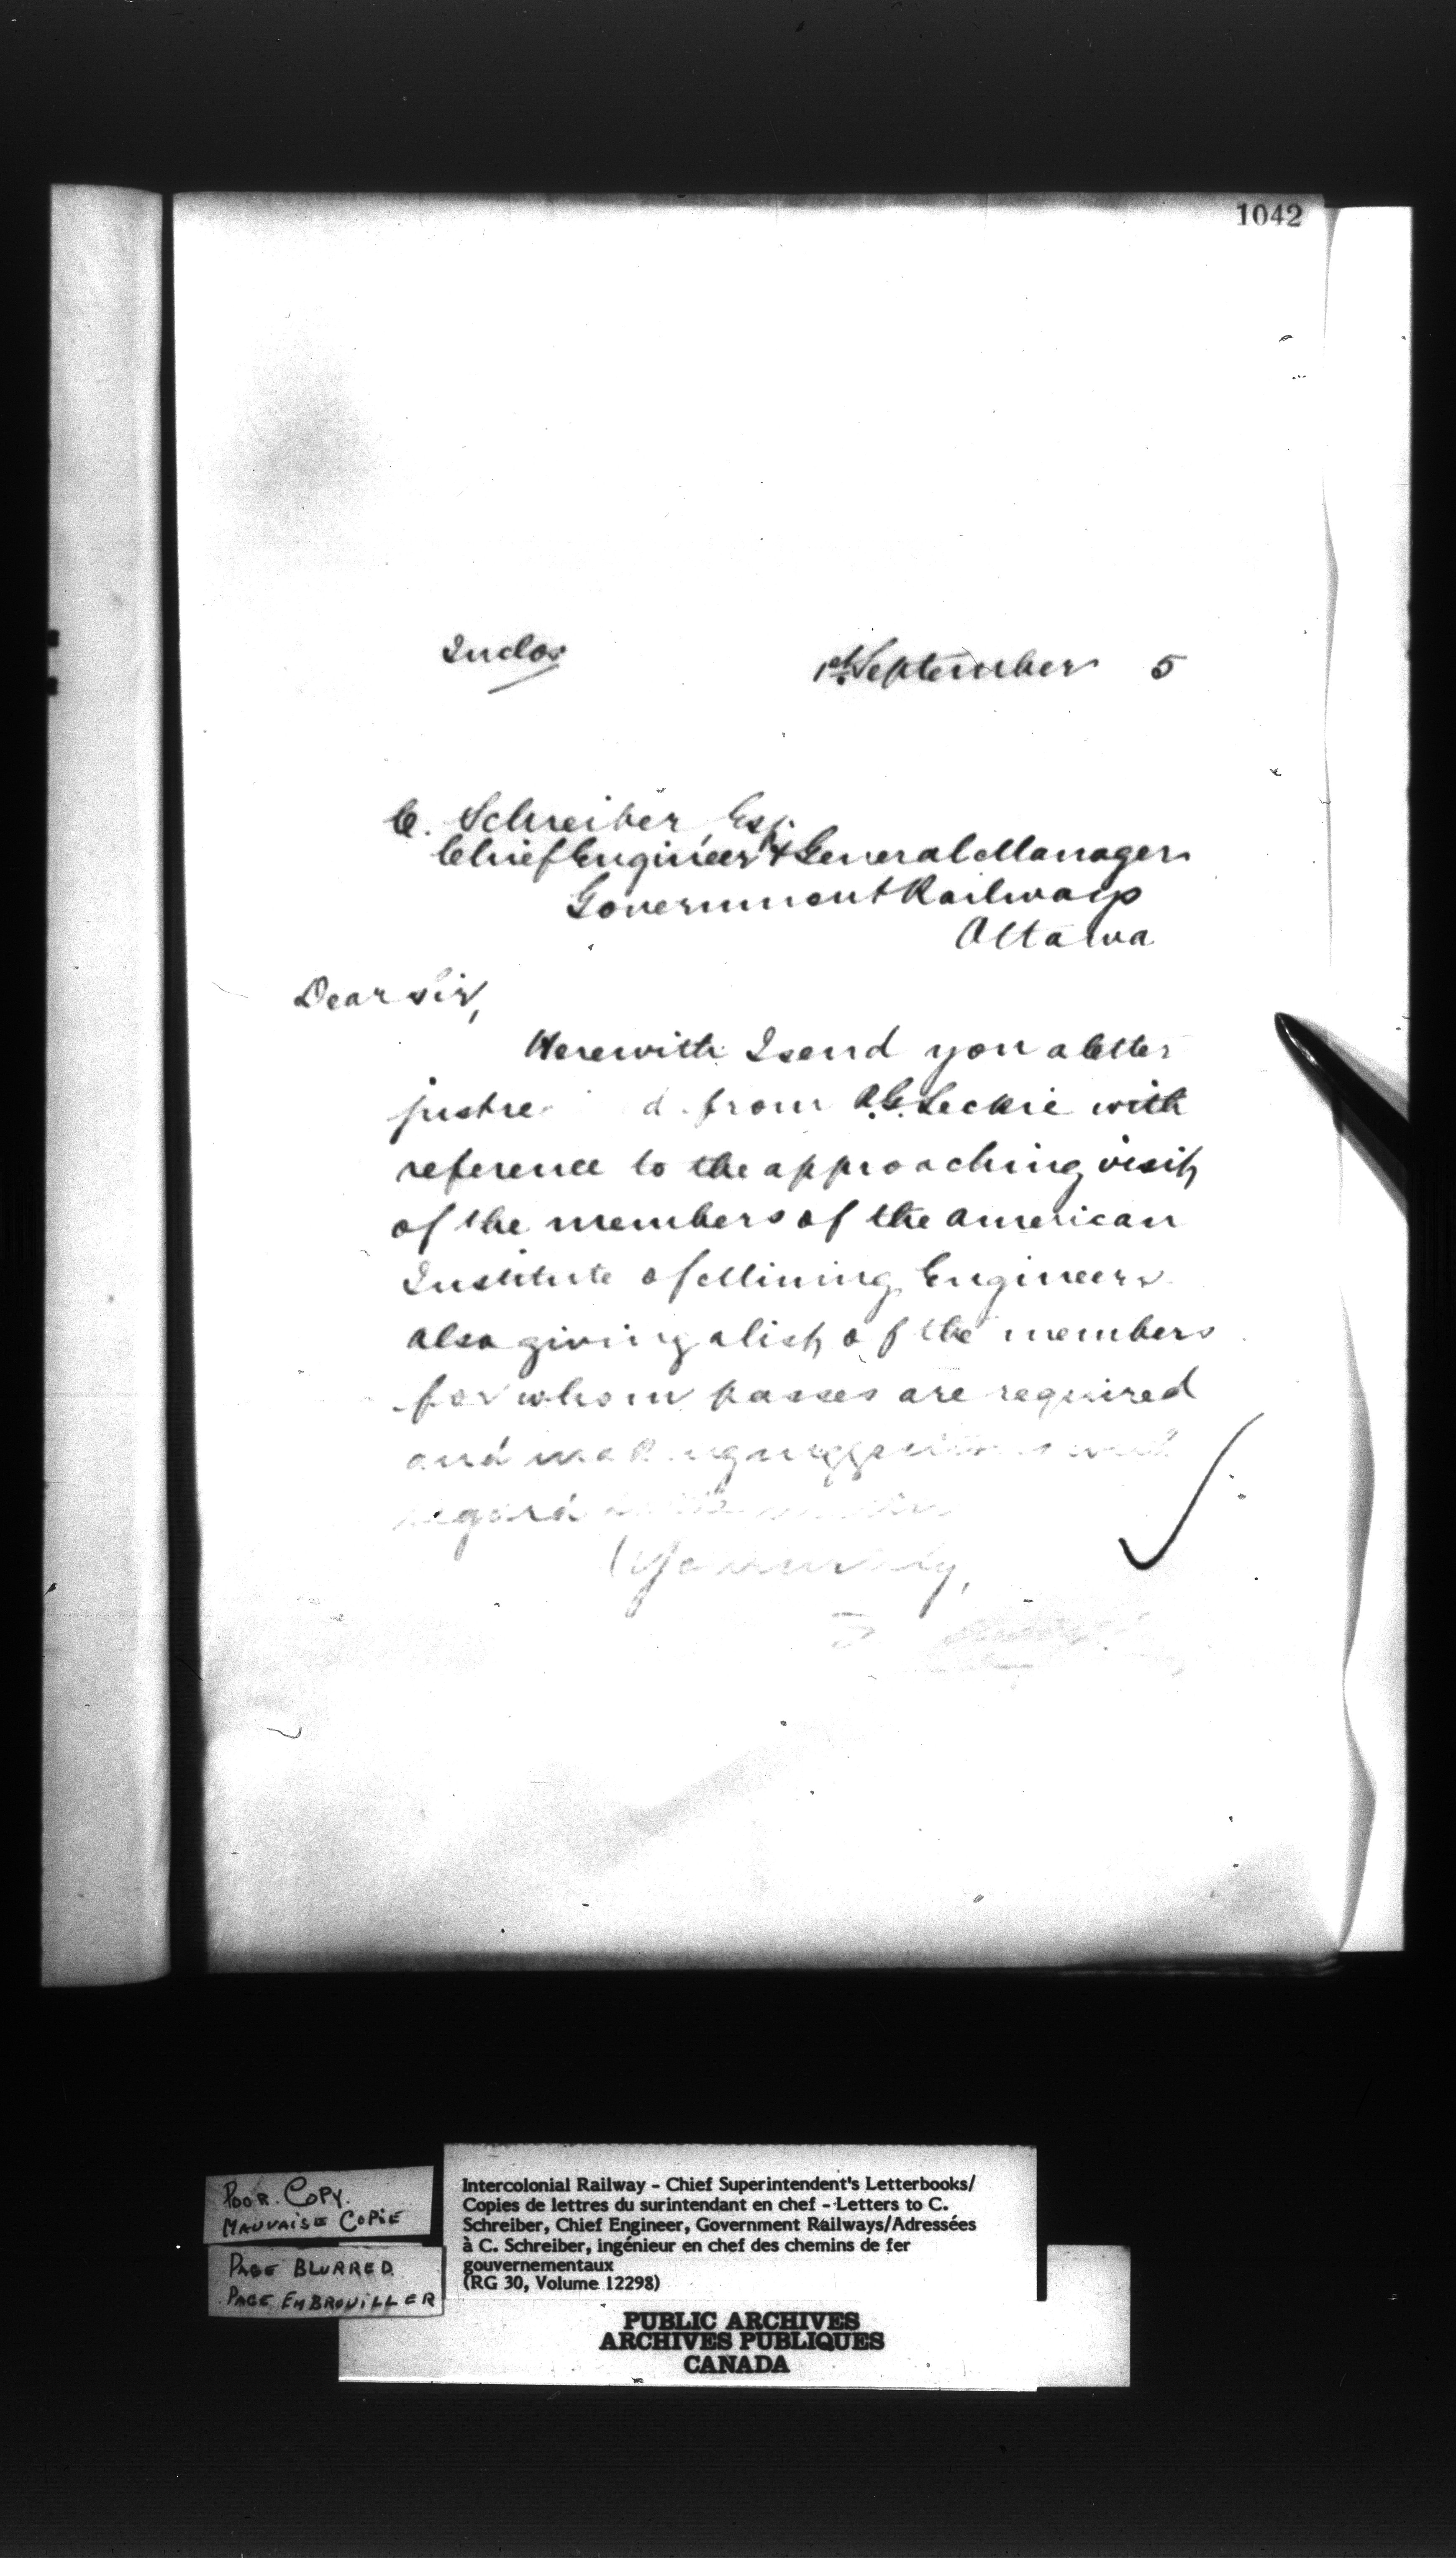 1042
Inclos
1st. September 5
C. Schreiber, Esq.
Chief Engineer & General Manager
Government Railways
Ottawa
Dear Sir,
Herewith I send you a letter
just from R.G. Leckie with
reference to the approaching visit
of the members of the American
Institute of Mining Engineers
also giving a list of the members
for whom passes are required
and making suggestions with
regard
Yours truly,
POOR COPY.
MAUVAISE COPIE
PAGE BLURRED
PAGE EMBROUILLER
Intercolonial Railway - Chief Superintendent's Letterbooks/
Copies de lettres du surintendant en chef - Letters to C.
Schreiber, Chief Engineer, Government Railways/Adressées
à C. Schreiber, ingénieur en chef des chemins de fer
gouvernementaux
(RG 30, Volume 12298)
PUBLIC ARCHIVES
ARCHIVES PUBLIQUES
CANADA